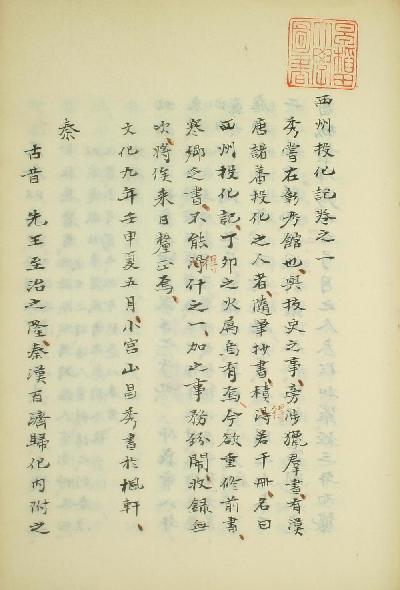 西州投化記卷之一
秀嘗在彰考館也與校史之事旁涉獵群書有漢
唐諸蕃投化之人者隨筆抄書積得若干冊名曰
西州投化記丁卯之火爲烏有焉今欲重修前書
寒鄉之書不能得什之一加之事務紛鬧收録無
次將俟来日釐正焉
文化九年壬申夏五月小宮山昌秀書於楓軒
秦
古昔先王至治之隆秦漢百濟歸化内附之